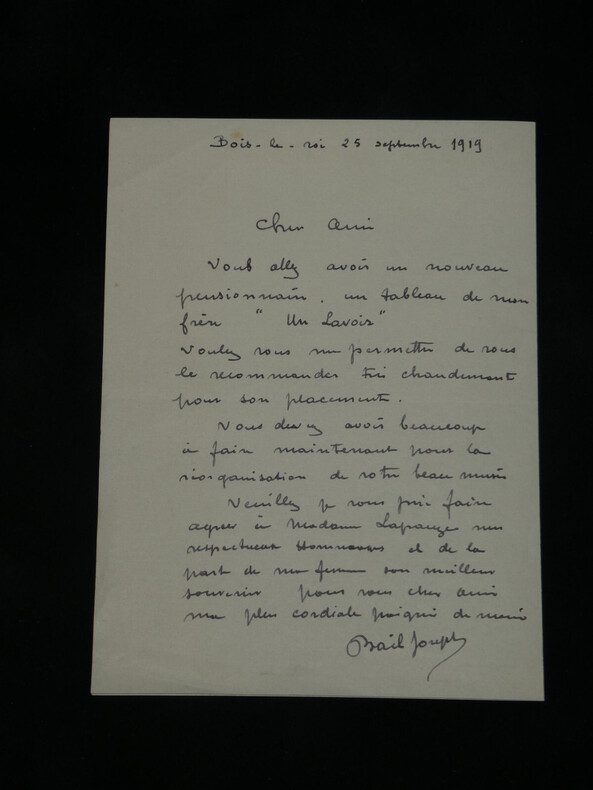 Bois-le-roi 25 septembre 1919
Cher Ami
Vous allez avoir un nouveau
pensionnaire, un tableau de mon
frère "Un Lavoir"
Voulez vous me permettre de vous
le recommander très chaudement
pour son placement.
Vous devez avoir beaucoup
à faire maintenant pour la
réorganisation de votre beau musée
Veuillez je vous prie faire
agréer à Madame Lapauze mes
respectueux Hommages et de la
part de ma femme son meilleur
souvenir pour vous cher ami
ma plus cordiale poignée de main
Bail Joseph